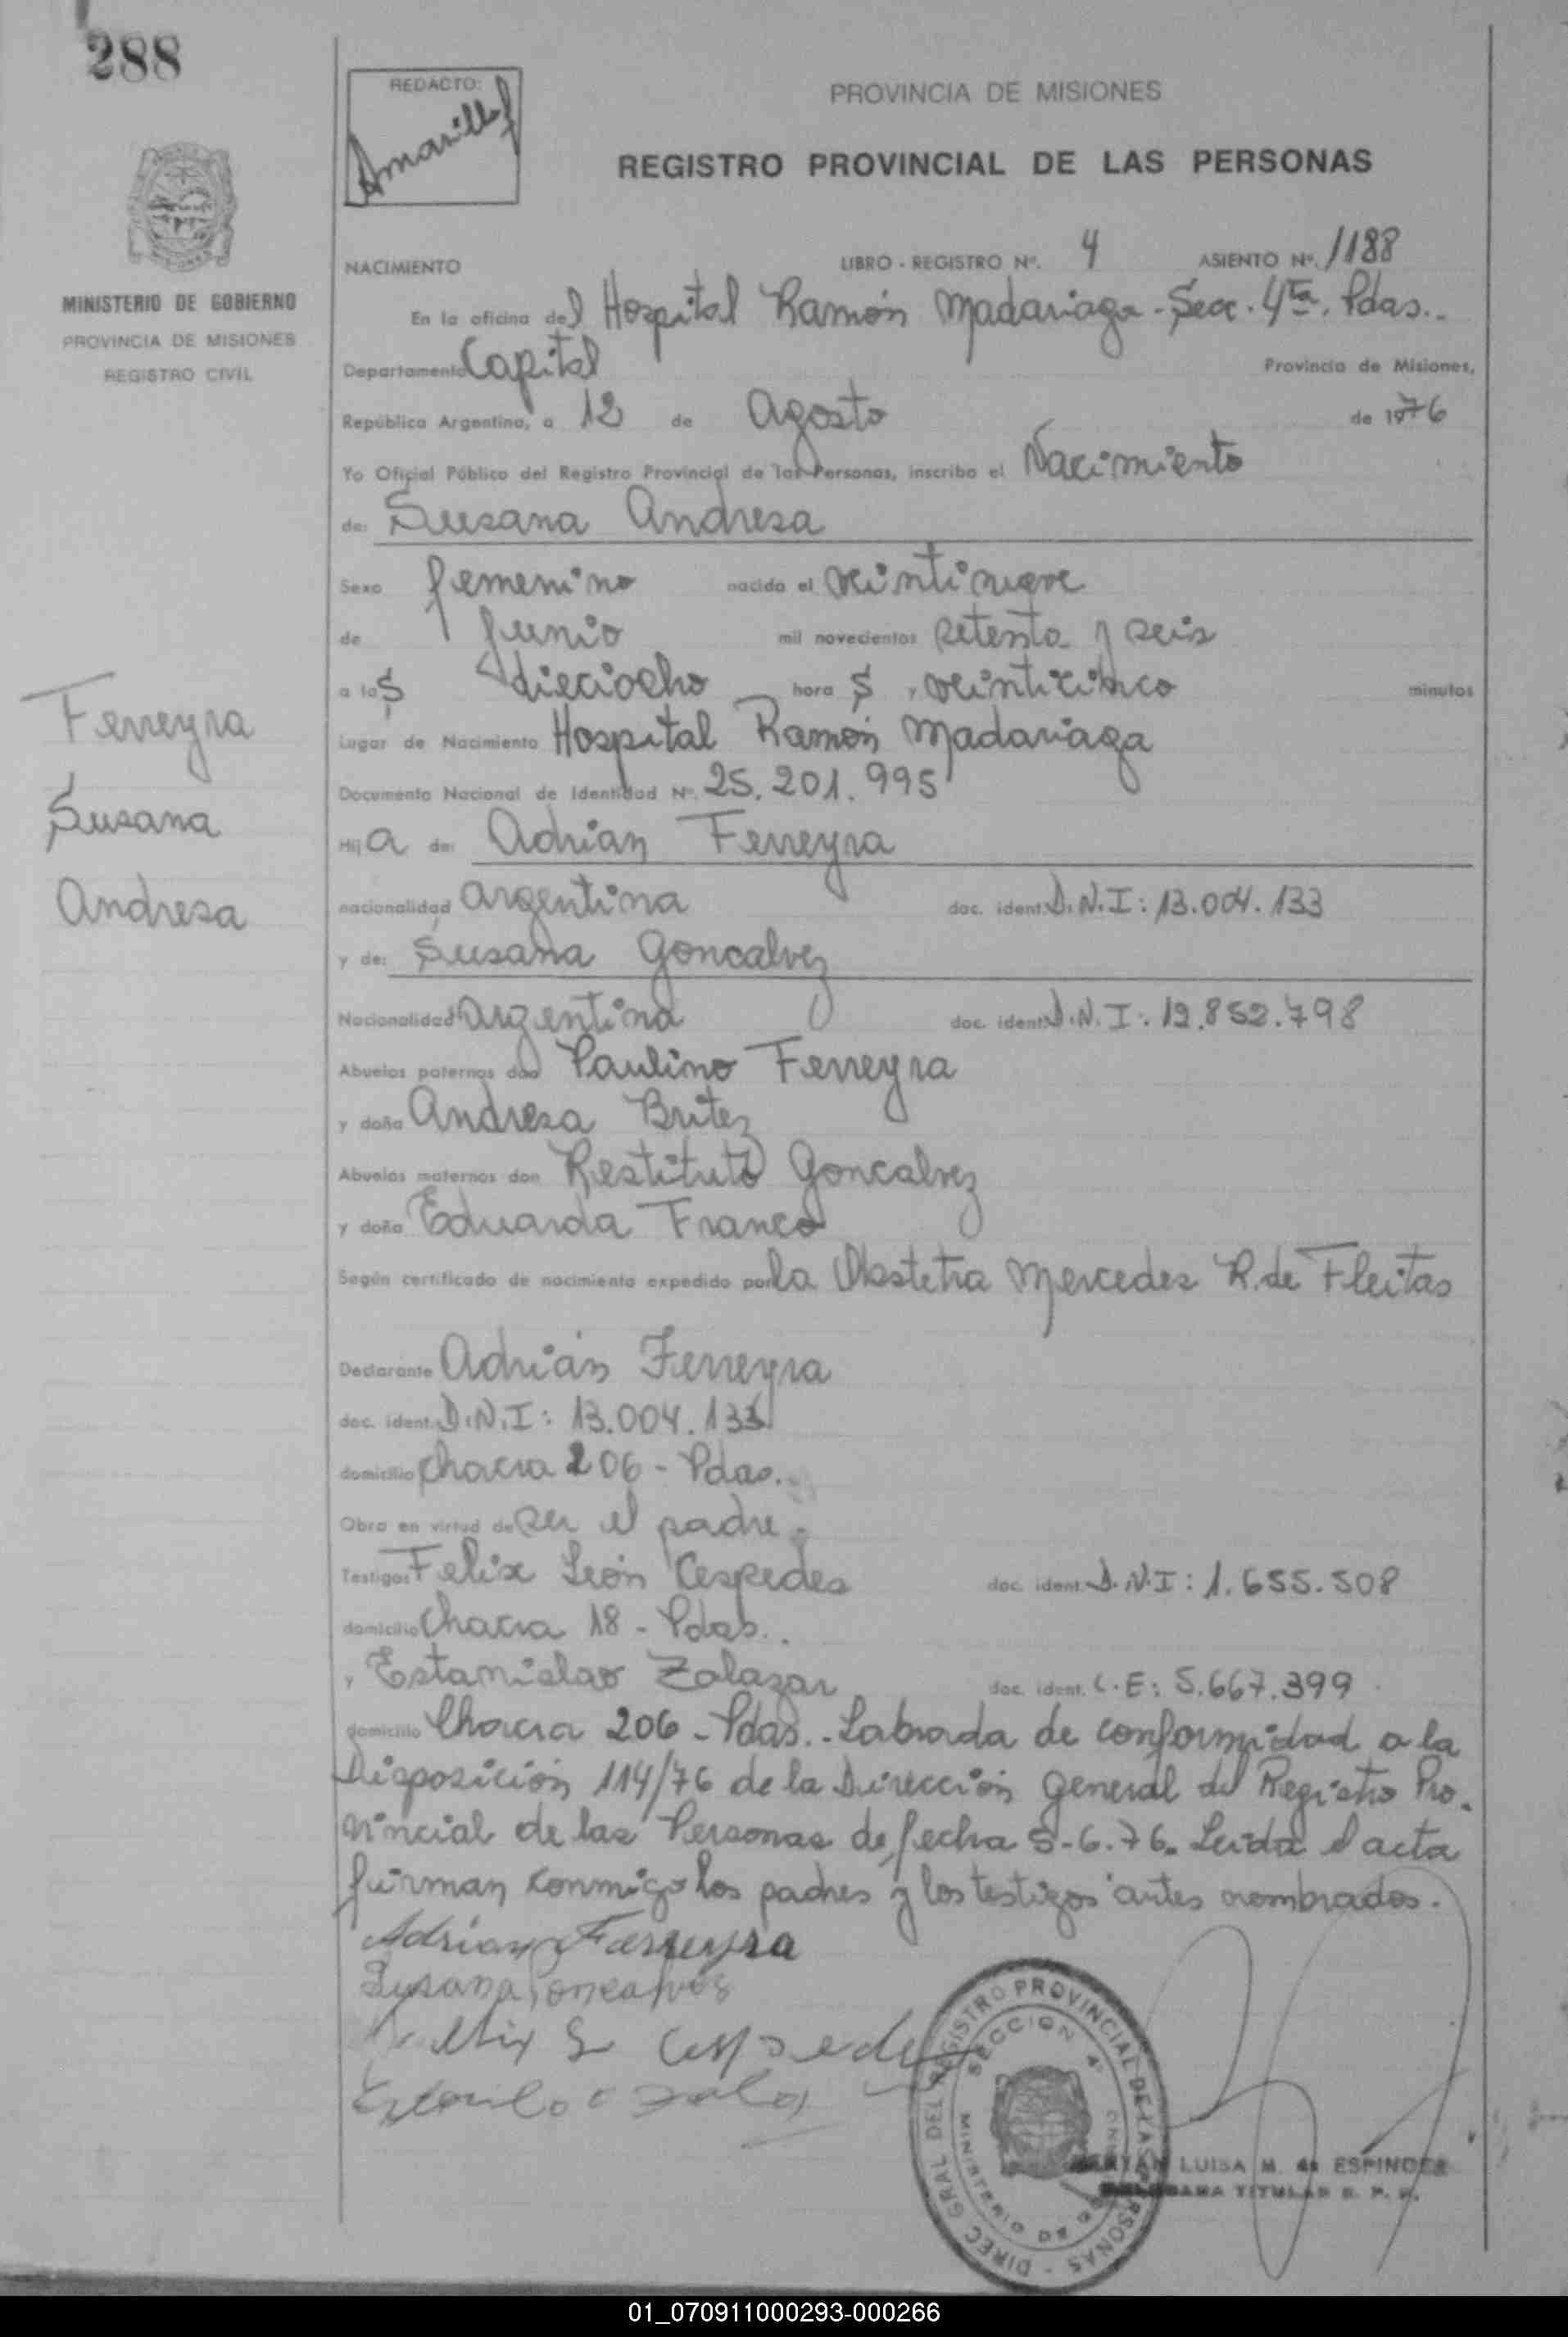 288
REDACTO:
Amarilla
PROVINCIA DE MISIONES
REGISTRO PROVINCIAL DE LAS PERSONAS
MINISTERIO DE GOBIERNO
PROVINCIA DE MISIONES
REGISTRO CIVIL
NACIMIENTO LIBRO - REGISTRO Nº. 4 ASIENTO Nº. 1188
En la oficina del Hospital Ramón Madariaga - Secc. 4ta. Pdas..
Departamento Capital Provincia de Misiones,
República Argentina, a 12 de Agosto de 1976
Yo Oficial Público del Registro Provincial de las Personas, inscribo el Nacimiento
de: Susana Andresa
Sexo femenino nacido el veintinueve
de Junio mil novecientos setenta y seis
a las dieciocho horas, veinticinco minutos
Lugar de Nacimiento Hospital Ramón Madariaga
Documento Nacional de Identidad Nº. 25.201.995
Hija de: Adrian Ferreyra
nacionalidad argentina doc. ident. D.N.I: 13.004.133
y de: Susana Goncalvez
Nacionalidad argentina doc. ident. D.N.I: 12.852.798
Abuelos paternos don Paulino Ferreyra
y doña Andresa Britez
Abuelos maternos don Restituto Goncalvez
y doña Eduarda Franco
Según certificado de nacimiento expedido por la Obstetra Mercedes R. de Fleitas
Declarante Adrián Ferreyra
doc. ident. D.N.I: 13.004.133
domicilio Chacra 206 - Pdas..
Obra en virtud de ser el padre.
Testigos Felix León Cespedes doc. ident. D.N.I: 1.655.508
domicilio Chacra 18 - Pdas..
y Estanislao Zalazar doc. ident. L.E: 5.667.399
domicilio Chacra 206 - Pdas.. Labrada de conformidad a la
Disposición 114/76 de la Dirección General del Registro Pro-
vincial de las Personas de fecha 5-6.76. Leida el acta
firman conmigo los padres y los testigos antes nombrados.
Ferreyra
Susana
Andresa
Adrian Ferreyra
Susana Goncalves
Felix L Cespedes
DIREC. GRAL. DEL REGISTRO PROVINCIAL DE LAS PERSONAS
SECCION 4ª
MINISTERIO DE GOB
LUISA M. de ESPINDOLA
TITULAR R. P. P.
01_070911000293-000266